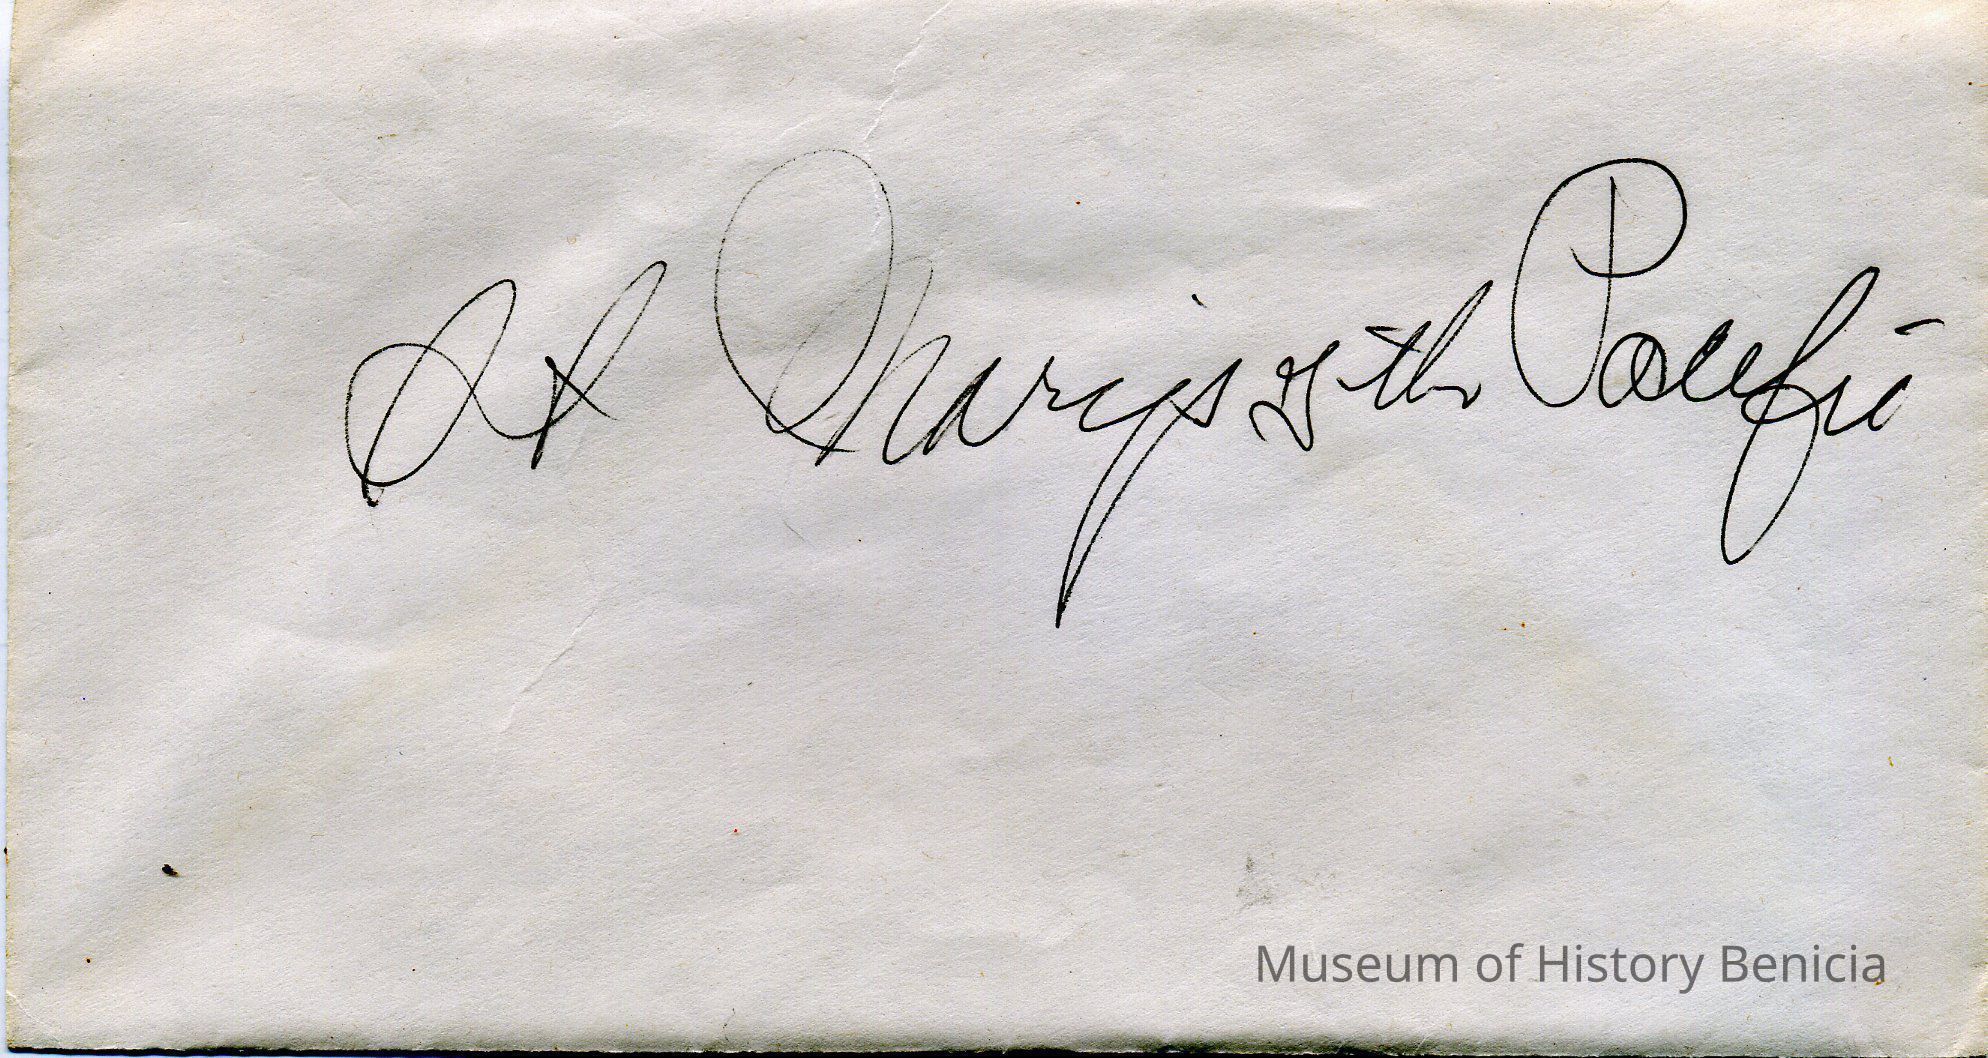 St Marys of the Pacific
Museum of History Benicia